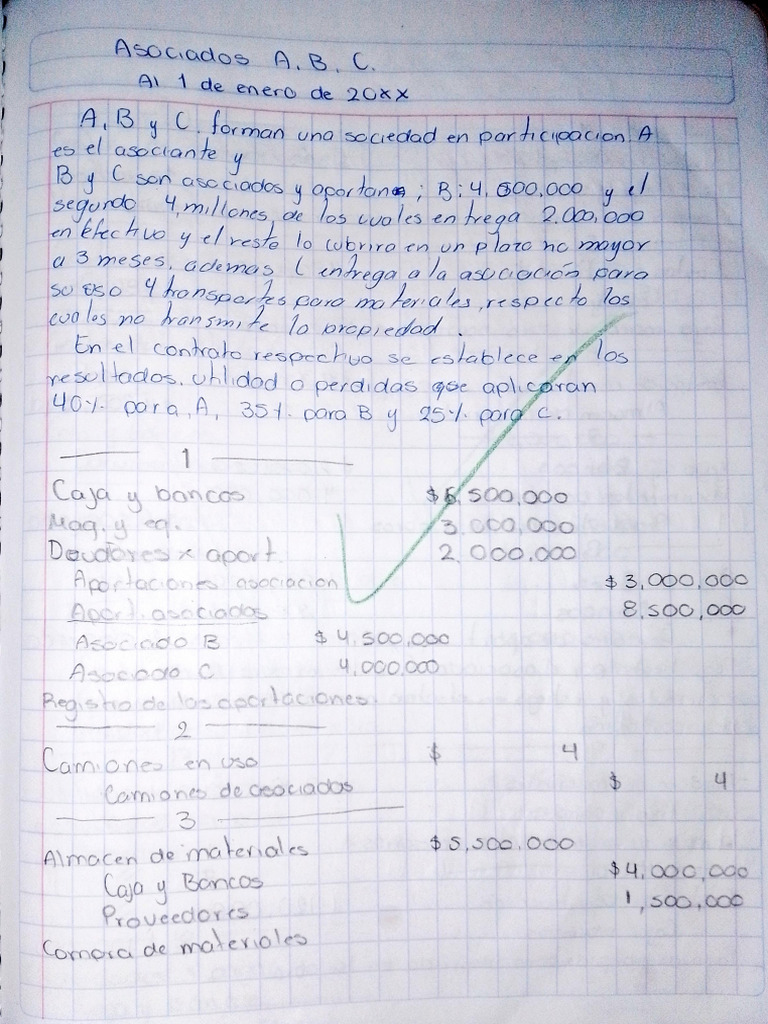 Asociados A. B. C.
Al 1 de enero de 20xx
A, B y C. forman una sociedad en participacion. A
es el asociante y
B y C son asociados y aportan; B: 4,500,000 y el
segundo 4, millones, de los cuales entrega 2.000,000
en efectivo y el resto lo cubrira en un plazo no mayor
a 3 meses, ademas C entrega a la asociación para
su uso 4 transportes para materiales, respecto los
cuales no transmite la propiedad.
En el contrato respectivo se establece en los
resultados, utilidad o perdidas que aplicaran
40% para A, 35% para B y 25% para C.
1
Caja y bancos $6,500,000
Maq. y eq. 3.000,000
Deudores x aport. 2.000.000
Aportaciones asociacion $3,000,000
Aport. asociados 8,500,000
Asociado B $4,500,000
Asociado C 4,000,000
Registro de las aportaciones.
2
Camiones en uso $ 4
Camiones de asociados $ 4
3
Almacen de materiales $5,500.000
Caja y Bancos $4,000,000
Proveedores 1,500,000
Compra de materiales